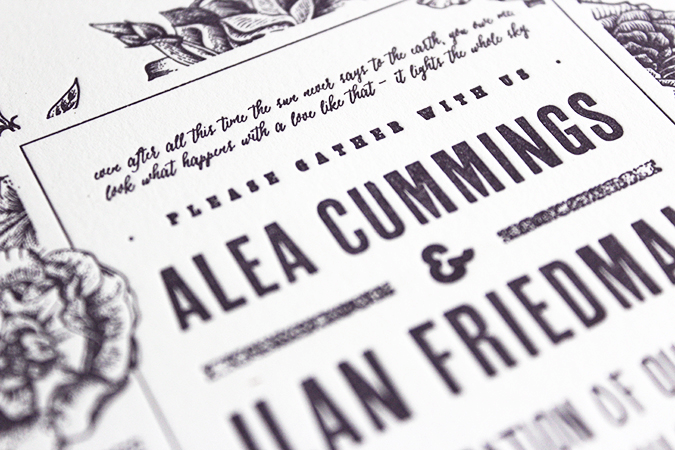 even after all this time the sun never says to the earth, you owe me.
look what happens with a love like that - it lights the whole sky
PLEASE GATHER WITH US
ALEA CUMMINGS
&
ILAN FRIEDMA
ATION OF QU